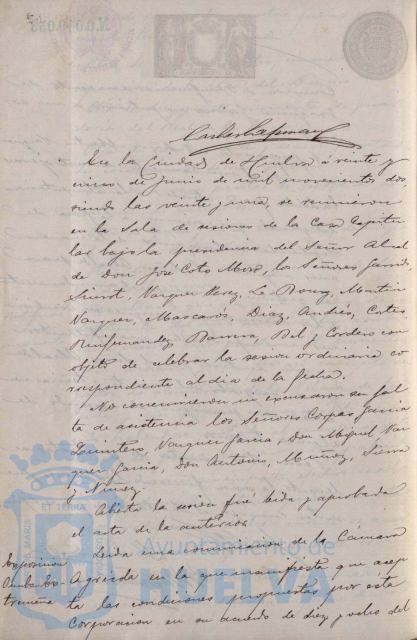 En la Ciudad de Huelva á veinte y
cinco de Junio de mil novecientos dos
siendo las veinte y una, se reunieron
en la Sala de sesiones de la Casa Capitu
lar bajo la presidencia del Señor Alcal
de Don José Coto Mora, los Señores Garrido
Vazquez Perez, Le Bourg, Martin
Vazquez, Mascarós, Diaz, Andrés, Coto,
Ruifernandez, Barrera, Bel y Cordero con
objeto de celebrar la sesion ordinaria co
rrespondiente al dia de la fecha.
No concurrieron ni excusaron su fal
ta de asistencia los Señores Corpas Garcia
Quintero, Vazquez Garcia, Don Miguel, Vaz
quez Garcia, Don Antonio, Muñoz, Sierra
y Nuñez.
Abierta la sesion fué leida y aprobada
el acta de la anterior.
Exposicion
Leida una comunicacion de la Cámara
Agrícola en la que manifiesta que acep
tremeña
ta las condiciones propuestas por esta
Corporacion en su acuerdo de diez y ocho del
ET TERRA
Ayuntamiento de
HUELVA